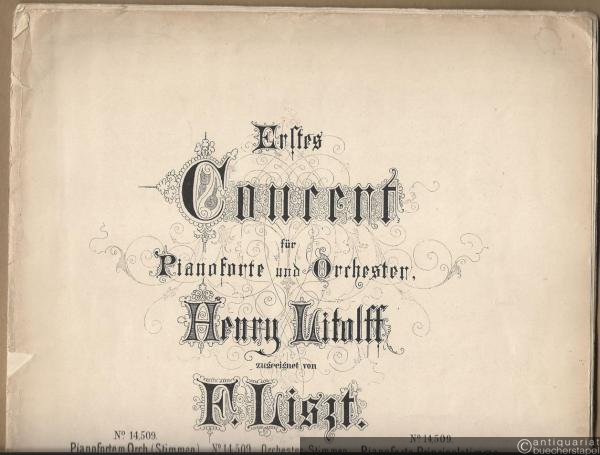 Erstes
Concert
für
Pianoforte und Orchester,
Henry Litolff
zugeeignet von
F. Liszt.
No. 14,509. No. 14,509.
Pianoforte m. Orch. (Stimmen) No. 14,509. Orchester-Stimmen
antiquariat
buecherstapel